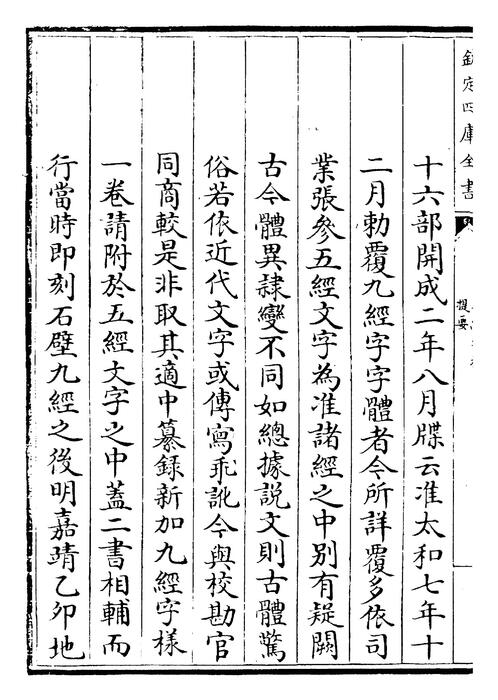 欽定四庫全書
提要
十六部開成二年八月牒云准太和七年十
二月勅覆九經字字體者今所詳覆多依司
業張參五經文字為准諸經之中別有疑闕
古今體異隸變不同如總據説文則古體驚
俗若依近代文字或傳寫乖訛今與校勘官
同商較是非取其適中纂録新加九經字樣
一卷請附於五經文字之中葢二書相輔而
行當時即刻石壁九經之後明嘉靖乙卯地